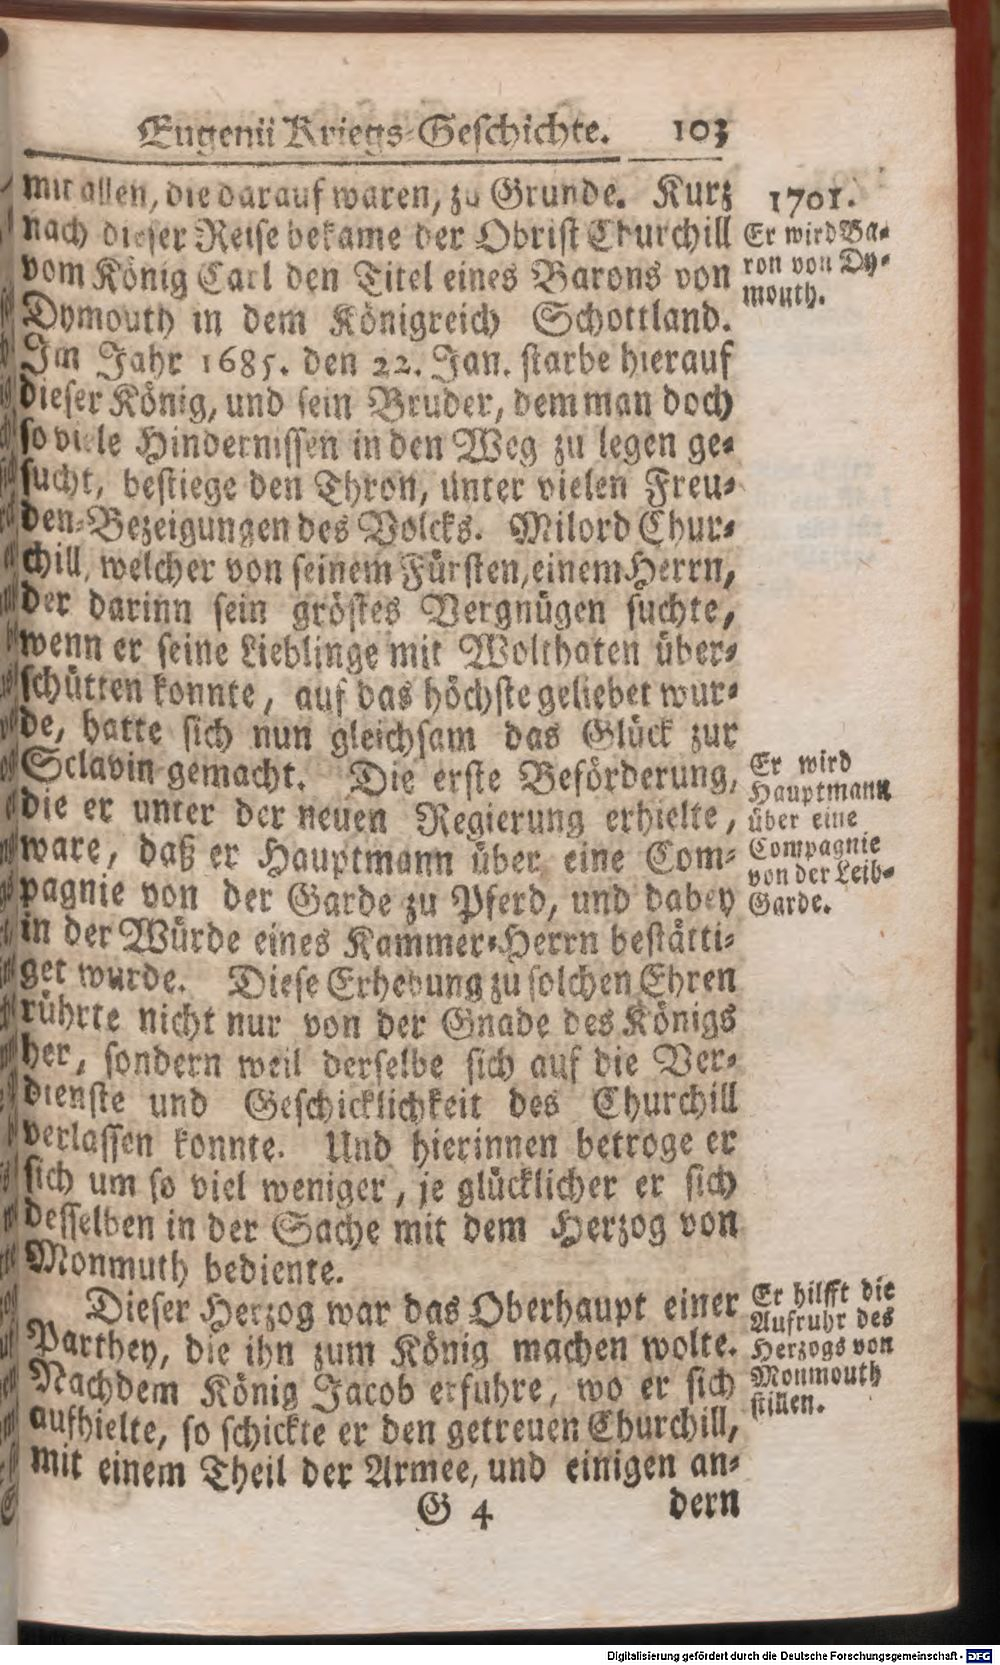 Eugenii Kriegs-Geschichte. 103
mit allen, die darauf waren, zu Grunde. Kurz
nach dieser Reise bekame der Obrist Churchill
vom König Carl den Titel eines Barons von
Dymouth in dem Königreich Schottland.
Im Jahr 1685. den 22. Jan. starbe hierauf
dieser König, und sein Bruder, dem man doch
so viele Hindernissen in den Weg zu legen ge-
sucht, bestiege den Thron, unter vielen Freu-
den-Bezeigungen des Volcks. Milord Chur-
chill, welcher von seinem Fürsten, einem Herrn,
der darinn sein gröstes Vergnügen suchte,
wenn er seine Lieblinge mit Wolthaten über-
schütten konnte, auf das höchste geliebet wur-
de, hatte sich nun gleichsam das Glück zur
Sclavin gemacht. Die erste Beförderung,
die er unter der neuen Regierung erhielte,
ware, daß er Hauptmann über eine Com-
pagnie von der Garde zu Pferd, und dabey
in der Würde eines Kammer-Herrn bestätti-
get wurde. Diese Erhebung zu solchen Ehren
rührte nicht nur von der Gnade des Königs
her, sondern weil derselbe sich auf die Ver-
dienste und Geschicklichkeit des Churchill
verlassen konnte. Und hierinnen betroge er
sich um so viel weniger, je glücklicher er sich
desselben in der Sache mit dem Herzog von
Monmuth bediente.
Dieser Herzog war das Oberhaupt einer
Parthey, die ihn zum König machen wolte.
Nachdem König Jacob erfuhre, wo er sich
aufhielte, so schickte er den getreuen Churchill,
mit einem Theil der Armee, und einigen an-
G 4 dern
1701.
Er wird Ba-
ron von Dy-
mouth.
Er wird
Hauptmann
über eine
Compagnie
von der Leib-
Garde.
Er hilfft die
Aufruhr des
Herzogs von
Monmouth
stillen.
Digitalisierung gefördert durch die Deutsche Forschungsgemeinschaft - DFG